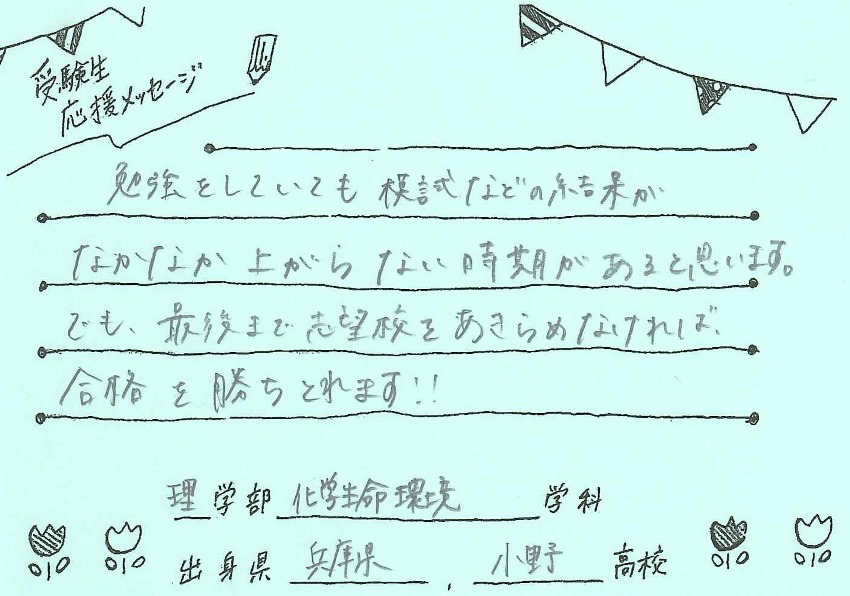 受験生
応援メッセージ
勉強をしていても模試などの結果が
なかなか上がらない時期があると思います。
でも、最後まで志望校をあきらめなければ、
合格を勝ちとれます!!
理学部 化学生命環境 学科
出身県 兵庫県 , 小野 高校